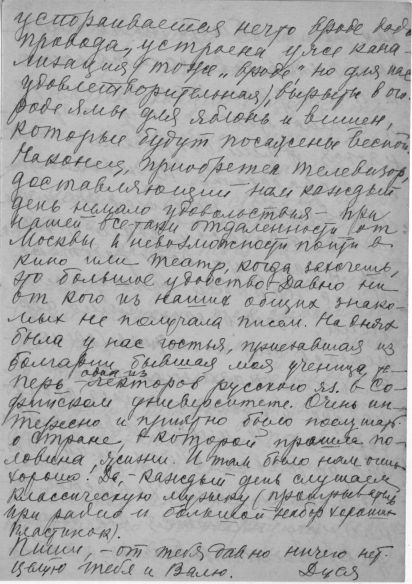 устраивается нечто вроде водо
провода, устроена уже кана
лизация (тоже „вроде“, но для нас
удовлетворительная), вырыты в ого
роде ямы для яблонь и вишен,
которые будут посажены весной.
Наконец, приобретен телевизор,
доставляющий нам каждый
день немало удовольствия – при
нашей все-таки отдаленности от
Москвы и невозможности пойти в
кино или театр, когда захочешь,
это большое удобство. Давно ни
от кого из наших общих знако
мых не получала писем. На днях
была у нас гостья, приехавшая из
Болгарии бывшая моя ученица, те
перь одна из лекторов русского яз. в Со
фийском университете. Очень ин
тересно и приятно было послушать
о стране, в которой прошла по
ловина жизни. И там было нам очень
хорошо. Да, – каждый день слушаем
классическую музыку (проигрыватель
при радио и большой набор хороших
пластинок).
Пиши, – от тебя давно ничего нет.
Целую тебя и Валю. Дуся